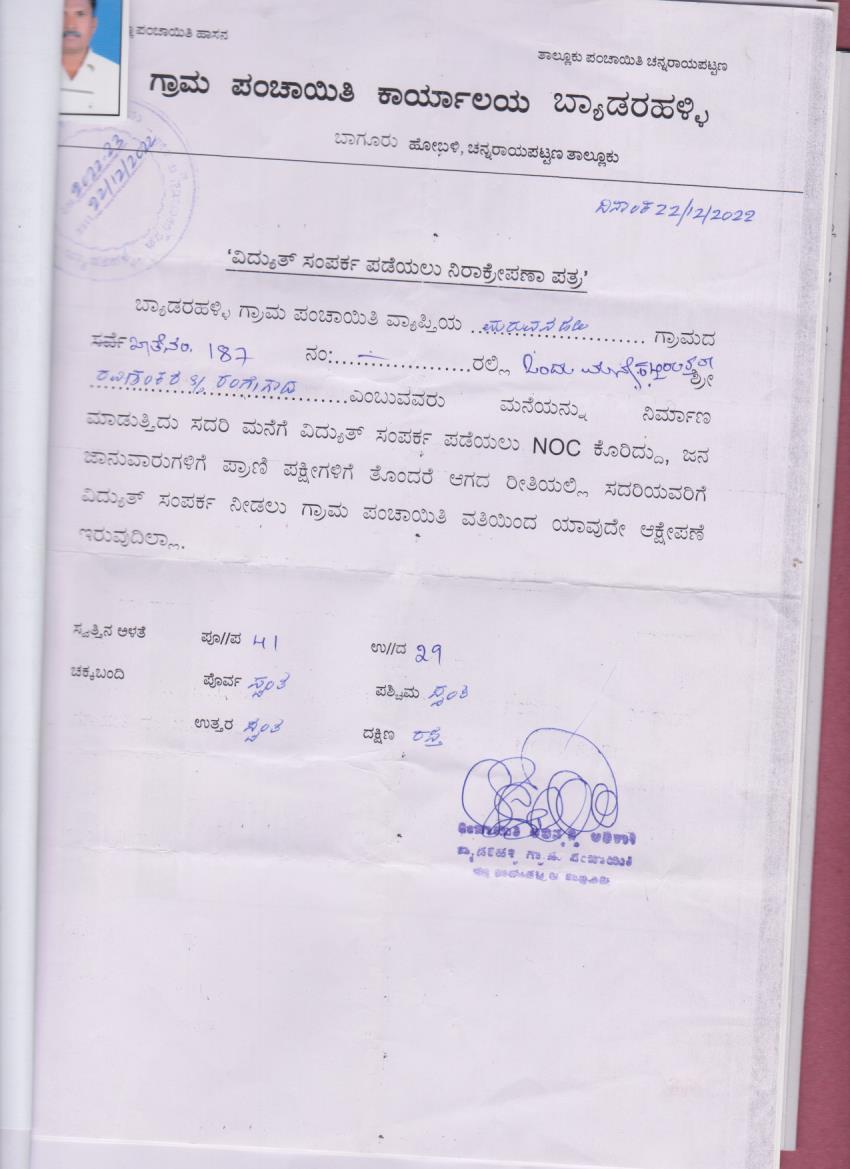 ಪಂಚಾಯಿತಿ ಹಾಸನ
ತಾಲ್ಲೂಕು ಪಂಚಾಯಿತಿ ಚನ್ನರಾಯಪಟ್ಟಣ
ಗ್ರಾಮ ಪಂಚಾಯಿತಿ ಕಾರ್ಯಾಲಯ ಬ್ಯಾಡರಹಳ್ಳಿ
ಬಾಗೂರು ಹೋಬಳಿ, ಚನ್ನರಾಯಪಟ್ಟಣ ತಾಲ್ಲೂಕು
2022-23
22/12/2022
ದಿನಾಂಕ 22/12/2022
'ವಿದ್ಯುತ್ ಸಂಪರ್ಕ ಪಡೆಯಲು ನಿರಾಕ್ಷೇಪಣಾ ಪತ್ರ'
ಬ್ಯಾಡರಹಳ್ಳಿ ಗ್ರಾಮ ಪಂಚಾಯಿತಿ ವ್ಯಾಪ್ತಿಯ ಗ್ರಾಮದ
ಸರ್ವೆ ಖಾತೆನಂ. 187 ನಂ:....................ರಲ್ಲಿ ಒಂದು ಶ್ರೀ
ರವಿಶಂಕರ ರಂಗೇಗೌಡ ಎಂಬುವವರು ಮನೆಯನ್ನು ನಿರ್ಮಾಣ
ಮಾಡುತ್ತಿದು ಸದರಿ ಮನೆಗೆ ವಿದ್ಯುತ್ ಸಂಪರ್ಕ ಪಡೆಯಲು NOC ಕೊರಿದ್ದು, ಜನ
ಜಾನುವಾರುಗಳಿಗೆ ಪ್ರಾಣಿ ಪಕ್ಷೀಗಳಿಗೆ ತೊಂದರೆ ಆಗದ ರೀತಿಯಲ್ಲಿ ಸದರಿಯವರಿಗೆ
ವಿದ್ಯುತ್ ಸಂಪರ್ಕ ನೀಡಲು ಗ್ರಾಮ ಪಂಚಾಯಿತಿ ವತಿಯಿಂದ ಯಾವುದೇ ಆಕ್ಷೇಪಣೆ
ಇರುವುದಿಲ್ಲಾ.
ಸ್ವತ್ತಿನ ಅಳತೆ ಪೂ//ಪ 41 ಉ//ದ 29
ಚಕ್ಕಬಂದಿ ಪೊರ್ವ ಸ್ವಂತ ಪಶ್ಚಿಮ ಸ್ವಂತ
ಉತ್ತರ ಸ್ವಂತ ದಕ್ಷಿಣ ರಸ್ತೆ
ಪಂಚಾಯಿತಿ ಅಭಿವೃದ್ಧಿ ಅಧಿಕಾರಿ
ಬ್ಯಾಡರಹಳ್ಳಿ ಗ್ರಾಮ ಪಂಚಾಯಿತಿ